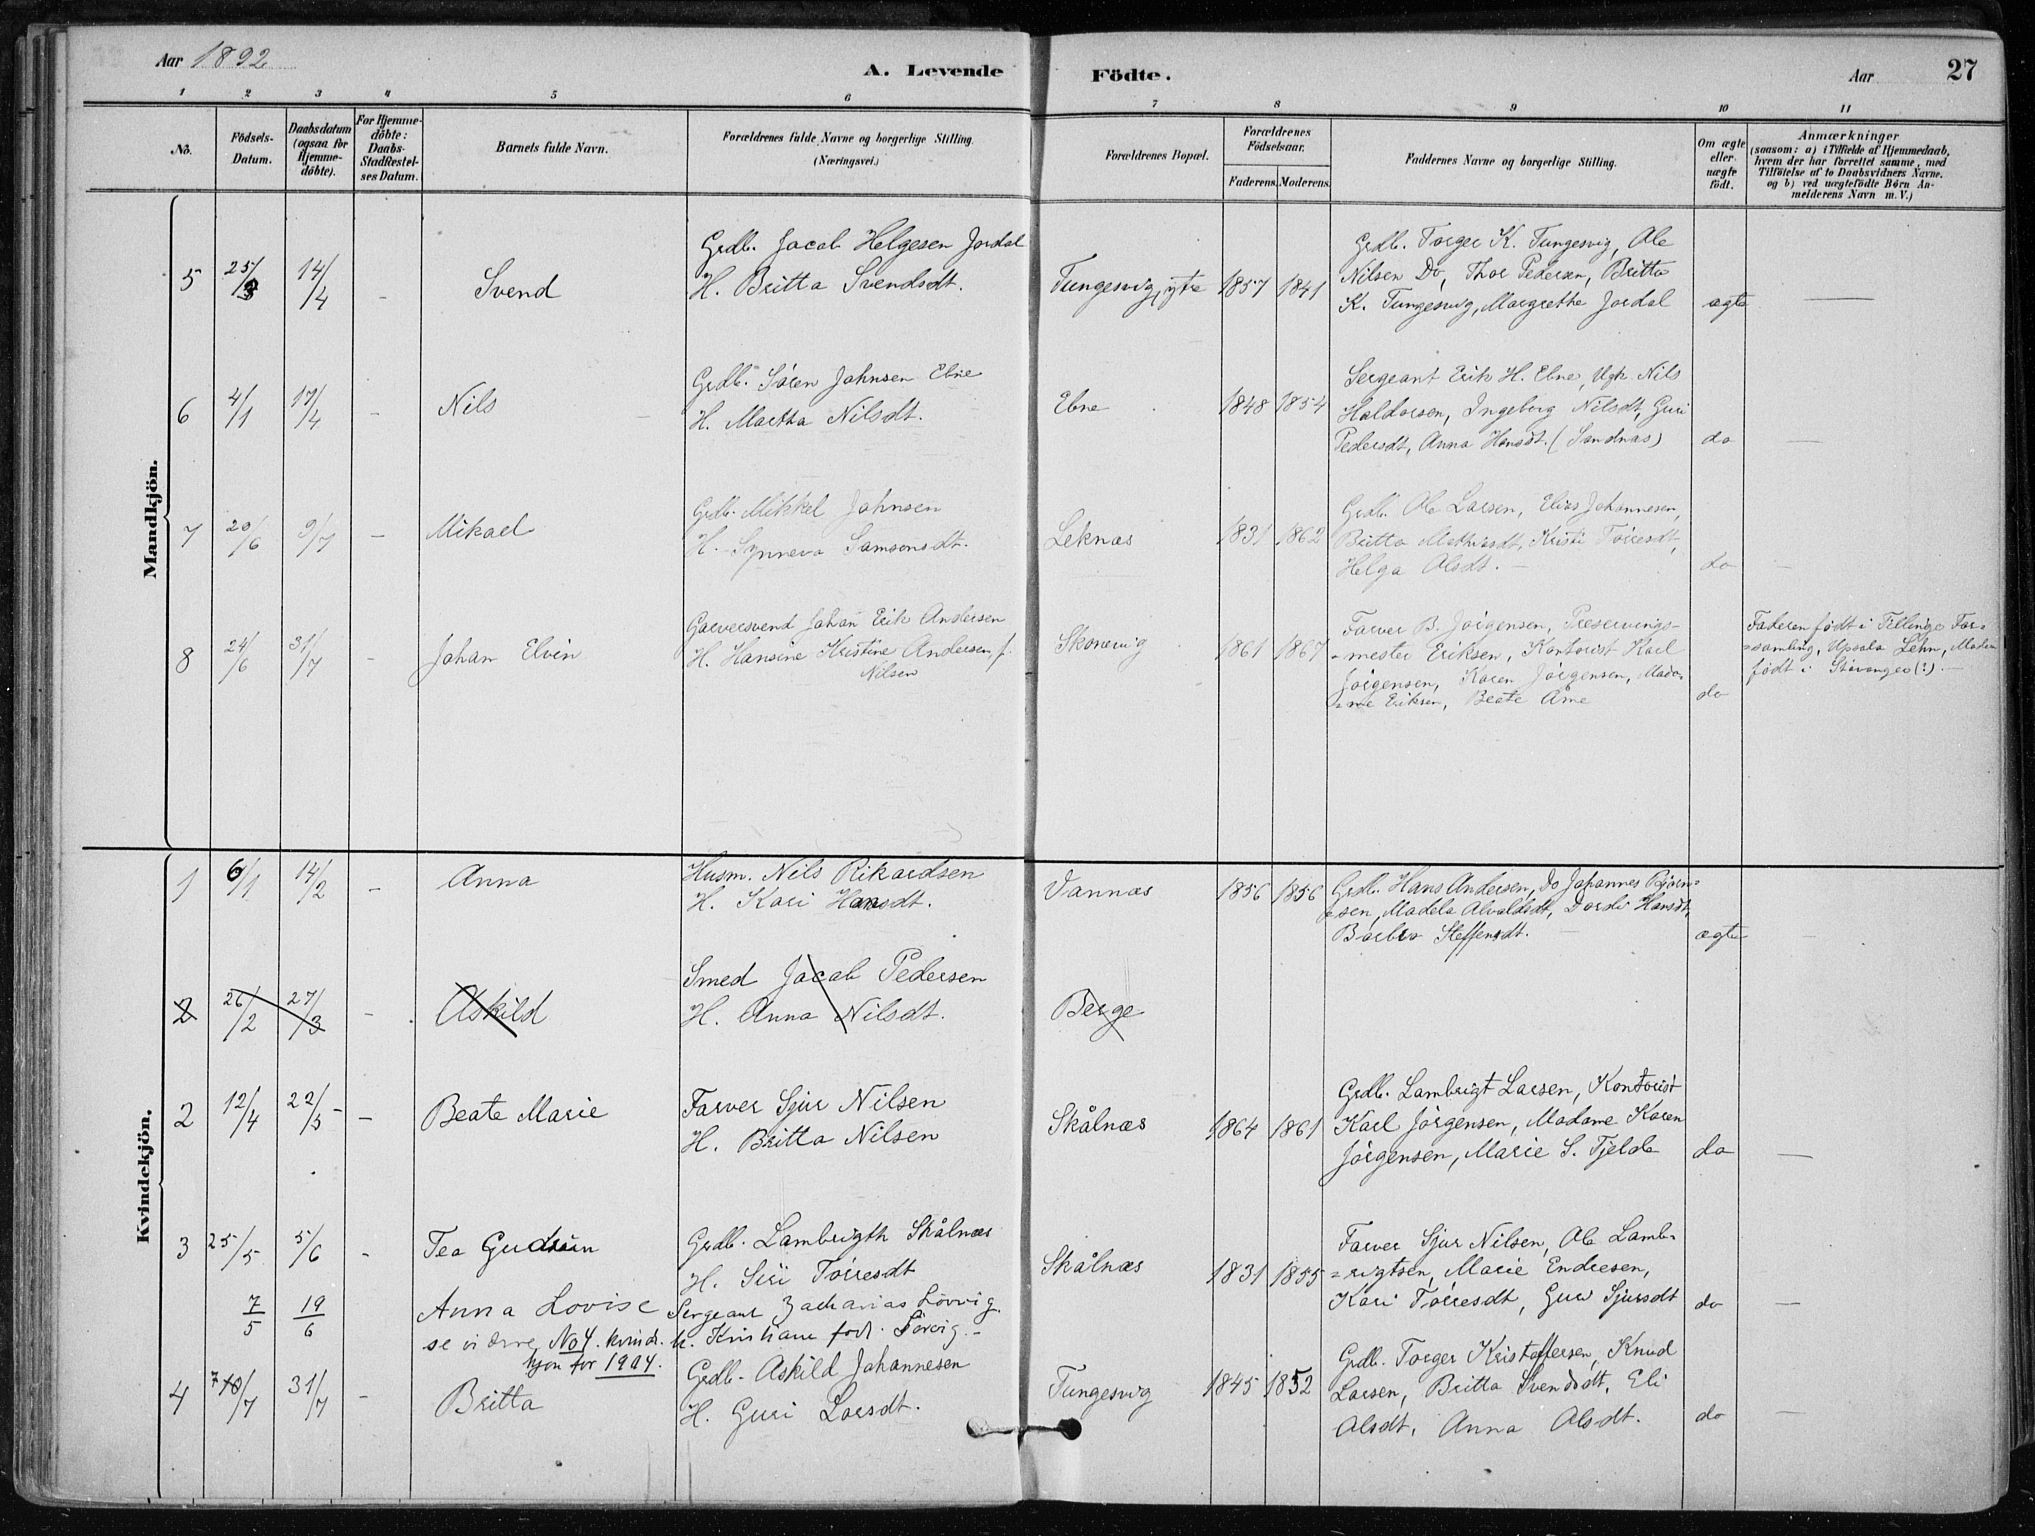 Aar 1892
A. Levende Födte.
Aar
27
1 2 3 4 5 6 7 8 9 10 11
No.
Födsels-Datum.
Daabsdatum (ogsaa for Hjemme-döbte).
For Hjemme-döbte: Daabs-Stadfæstel-ses Datum.
Barnets fulde Navn.
Forældrenes fulde Navne og borgerlige Stilling. (Næringsvei.)
Forældrenes Bopæl.
Forældrenes Födselsaar.
Faderens. Moderens.
Faddernes Navne og borgerlige Stilling.
Om ægte eller uægte födt.
Anmærkninger
(saasom: a) i Tilfælde af Hjemmedaab, hvem der har forrettet samme, med Tilföielse af to Daabsvidners Navne. og b) ved uægtefödte Börn An-melderens Navn m. V.)
Mandkjön.
5 25/3 14/4 - Svend
Grdb. Jacob Helgesen Jordal
H. Britta Svendsdt.
Tungesvig, ytre 1857 1841
Grdb. Torger K. Tungesvig, Ole
Nilsen Do, Thor Pedersen, Britta
K. Tungesvig, Margrethe Jordal
ægte —
6 4/1 17/4 - Nils
Grdb. Sören Johnsen Ebne
H. Martha Nilsdt.
Ebne 1848 1854
Sergeant Erik H. Ebne, Ugk. Nils
Haldorsen, Ingeborg Nilsdt, Guri
Pedersdt, Anna Hansdt. (Sandnæs)
do —
7 20/6 9/7 - Mikael
Grdb. Mikkel Johnsen
H. Synneva Samsonsdt.
Leknæs 1831 1862
Grdb. Ole Larsen, Elias Johannesen,
Britta Mathiasdt, Kristi Törresdt,
Helga Olsdt. -
do -
8 24/6 31/7 - Johan Elvin
Garversvend Johan Erik Andersen
H. Hansine Kristine Andersen, f.
Nilsen
Skonevig 1861 1867
Farver B. Jörgensen, Preservings-
=mester Eriksen, Kontorist Karl
Jörgensen, Karen Jörgensen, Mada-
=me Eriksen, Beate Ame
do
Faderen födt i Tillinge For=
=samling, Upsala Lehn, Moderen
födt i Stavanger(?). -
Kvindekjön.
1 6/1 14/2 - Anna
Husm. Nils Rikardsen
H. Kari Hansdt.
Vannæs 1856 1856
Grdb. Hans Andersen, Do Johannes Björn=
=sen, Madela Alvaldsdt, Dordi Hansdt,
Barbro Steffensdt. -
ægte -
2 26/2 27/3 - Askild
Smed Jacob Pedersen
H. Anna Nilsdt.
Berge
2 12/4 22/5 - - Beate Marie
Farver Sjur Nilsen
H. Britta Nilsen
Skålnæs 1864 1861
Grdb. Lambrigt Larsen, Kontorist
Karl Jörgensen, Madame Karen
Jörgensen, Marie S. Fjelde
do —
3 25/5 5/6 - Tea Gudrun
Grdb. Lambrigth Skålnæs
H. Siri Törresdt
Skålnæs 1831 1855
Farver Sjur Nilsen, Ole Lamb-
=rigtsen, Marie Endresen,
Kari Törresdt, Guro Sjursdt
do —
7/5 19/6 Anna Lovise
Sergeant Zacharias Lövvig.
se videre No 4. kvindk.
h. Kristiane föd.
kjøn for 1904.
4 7/7 31/7 - Britta
Grdb. Askild Johannesen
H. Guri Larsdt.
Tungesvig 1845 1852
Grdb. Torger Kristoffersen, Knud
Larsen, Britta Svendsdt, Eli
Olsdt, Anna Olsdt.
do —